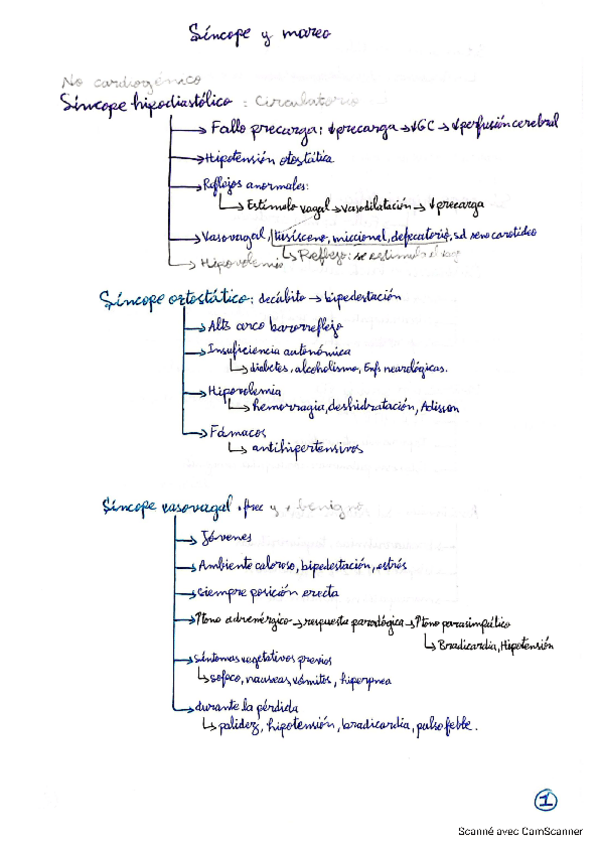 Síncope y mareo
No cardiogénico
Síncope hipodiastólico : Circulatorio
→ Fallo precarga: ↓precarga → ↓GC → ↓perfusión cerebral
→ Hipotensión otostática
→ Reflejos anormales:
↳ Estímulo vagal → vasodilatación → ↓precarga
→ Vasovagal, tusísceno, miccional, defecatorio, sd seno carotídeo
↳ Reflejo: se estimula el vag
→ Hipovolemia
Síncope ortostático: decúbito → bipedestación
→ Alts arco barorreflejo
→ Insuficiencia autonómica
↳ diabetes, alcoholismo, Enfs neurológicas.
→ Hipovolemia
↳ hemorragia, deshidratación, Adisson
→ Fármacos
↳ antihipertensivos
Síncope vasovagal + frec y + benigno
→ Jóvenes
→ Ambiente caloroso, bipedestación, estrés
→ siempre posición erecta
→ ↑tono adrenérgico → respuesta paradógica → ↑tono parasimpático
↳ Bradicardia, Hipotensión
→ síntomas vegetativos previos
↳ sofoco, nauseas, vómitos, hiperpnea
→ durante la pérdida
↳ palidez, hipotensión, bradicardia, pulso feble.
1
Scanné avec CamScanner